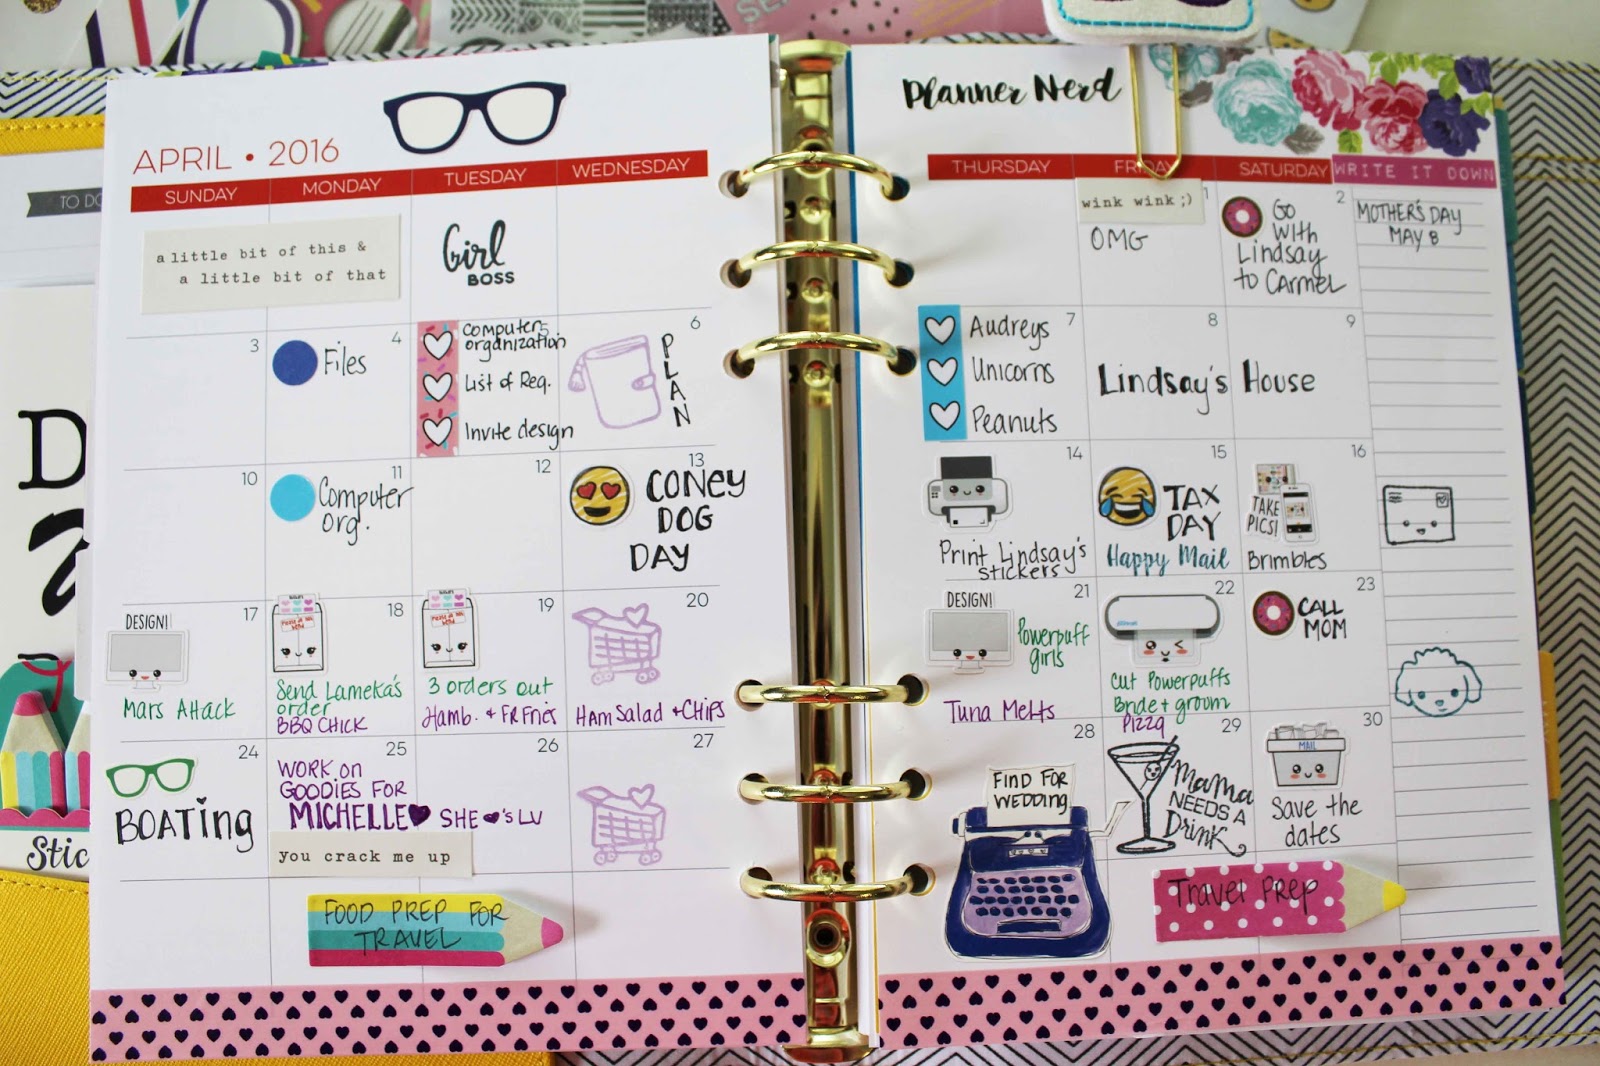 APRIL • 2016
SUNDAY
MONDAY
TUESDAY
WEDNESDAY
a little bit of this &
a little bit of that
Girl
BOSS
3
4
Files
Computers
organization
List of Req.
Invite design
6
PLAN
10
11
Computer
org.
12
13
CONEY
DOG
DAY
17
DESIGN!
Mars Attack
18
Send Lameka's
order
BBQ CHICK
19
3 orders out
Hamb. + FR Fries
20
HAM SALAD + CHIPS
24
BOATING
25
WORK ON
GOODIES FOR
MICHELLE
SHE 's LV
you crack me up
26
27
FOOD PREP FOR
TRAVEL
Planner Nerd
THURSDAY
FRIDAY
SATURDAY
WRITE IT DOWN
1
wink wink ;)
OMG
2
GO
WITH
Lindsay
to CARMEL
MOTHER'S DAY
MAY 8
7
Audreys
Unicorns
Peanuts
8
9
Lindsay's House
14
Print Lindsay's
stickers
15
TAX
DAY
Happy Mail
16
TAKE
PICS!
Brimbles
21
DESIGN!
Powerpuff
girls
TUNA MELTS
22
Cut Powerpuffs
Bride + groom
PIZZA
23
CALL
MOM
28
FIND FOR
WEDDING
29
MAMA
NEEDS A
DRINK
30
MAIL
Save the
dates
Travel PREP
TO DO
D
Stic